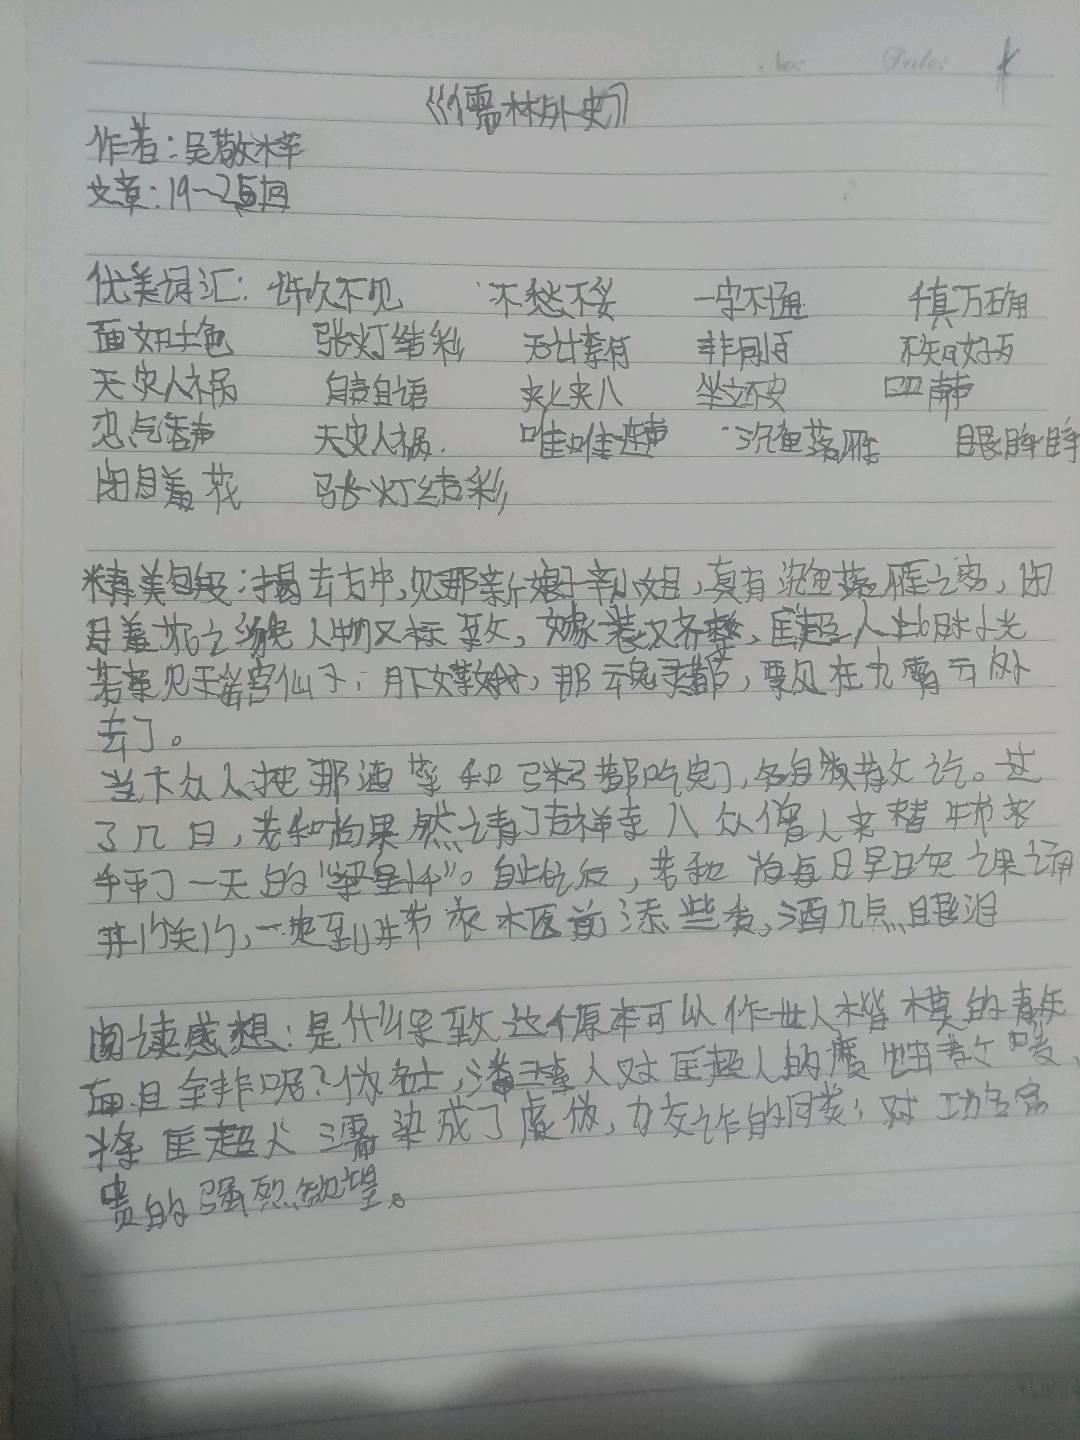 No: Date:
《儒林外史》
作者:吴敬梓
文章:19~25回
优美词汇: 许久不见 不愁不妥 一字不通 千真万确
面如土色 张灯结彩 无计奈何 非同 不知好歹
天灾人祸 自言自语 夹七夹八 坐立不安
忍气吞声 天灾人祸. 唯唯连声 沉鱼落雁 眼睁睁
闭月羞花 张灯结彩
精美句段:揭去方巾,见那新娘子辛小姐,真有沉鱼落雁之容,闭
月羞花之貌 人物又标致,嫁装又齐整,匡超人此时
若亲见瑶宫仙子,月下嫦娥,那魂灵都,飘在九霄云外
去了。
当下众人把那酒 和 都吃完了,各自散讫。过
了几日,老和尚果然请了吉祥寺八众僧人来替牛布衣
拜了一天的“梁皇忏”。自此之后,老和尚每日早晚课诵
开门关门,一定到牛布衣灵前添些香,洒几点眼泪
阅读感想:是什么导致这个原本可以作世人楷模的青年
面目全非呢?伪名士,潘三 人对匡超人的 教唆,
将匡超人 染成了虚伪, 诈的同类;对功名富
贵的强烈欲望。